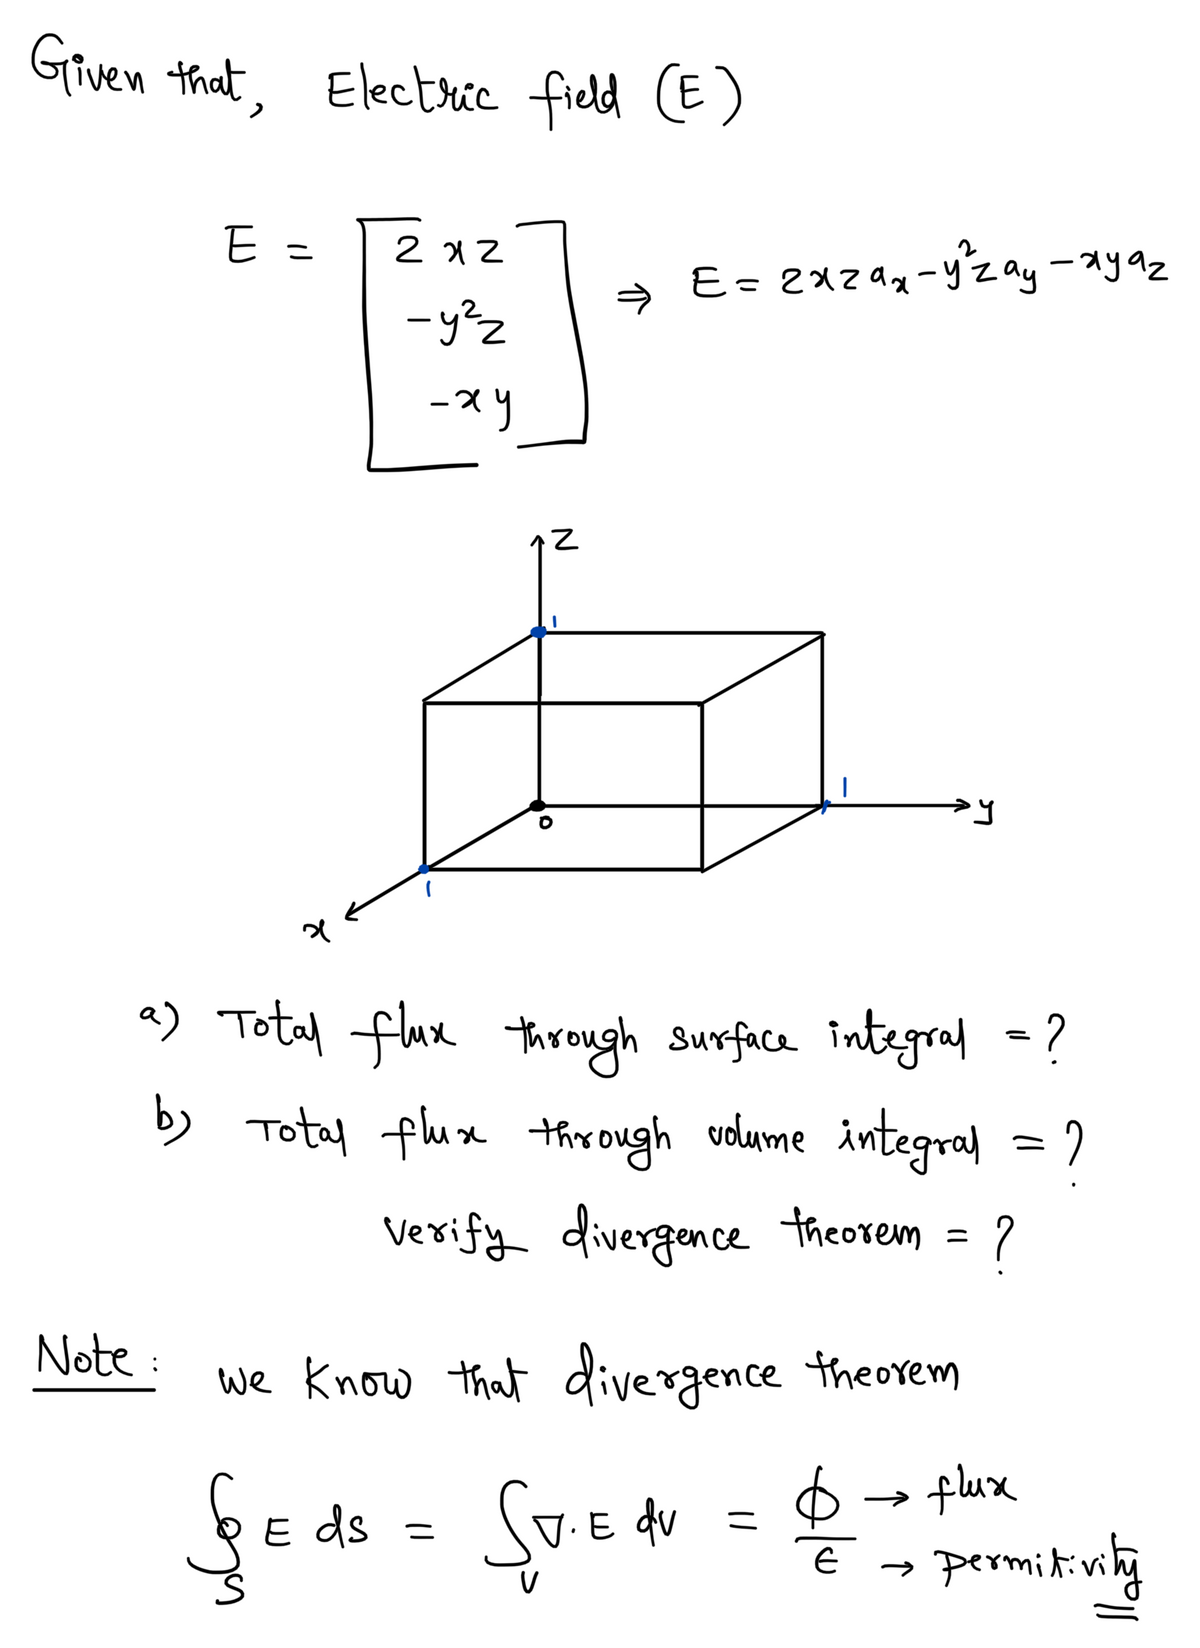 Given that, Electric field (E)
E = [ 2xz
-y²z
-xy ] ⇒ E = 2xz ax - y²z ay - xy az
z
1
1
0
y
1
x
a) Total flux through surface integral = ?
b) Total flux through volume integral = ?
verify divergence theorem = ?
Note : we know that divergence theorem
∮ E ds = ∫ ∇.E dv = ϕ → flux
S V ϵ → permitivity